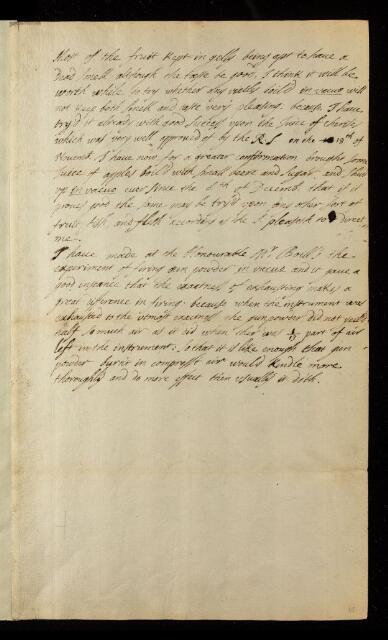 Most of the fruit kept in gellys being apt to have a
dead smell although the taste be good, I think it will be
worth while to try whether any gellys boild in vacuo will
not keep both smell and taste very pleasing because I have
try'd it already with good success upon the Juice of
which was very well approved of by the R.S. on the 18th of
Novemb. I have now for a greater confirmation brought some
Juice of apples boild with small beere and sugar and shut
up in vacuo ever since the 5th of Decemb. that if it
proves good the same may be try'd upon any other sort of
fruit, fish, and flesh according as the S. pleaseth to Direct
me.
I have made at the Honourable Mr Boyll's the
experiment of firing gun powder in vacuo and it gave a
good instance that the exactness of exhausting makes a
great difference in firing: because when the instrument was
exhausted to the utmost exactness the gunpowder did not yield
half so much air as it did when there was part of air
left in the instrument: so that it is like enough that gun
powder burnt in comprest air would kindle more
thoroughly and do more effect then usually it doth.